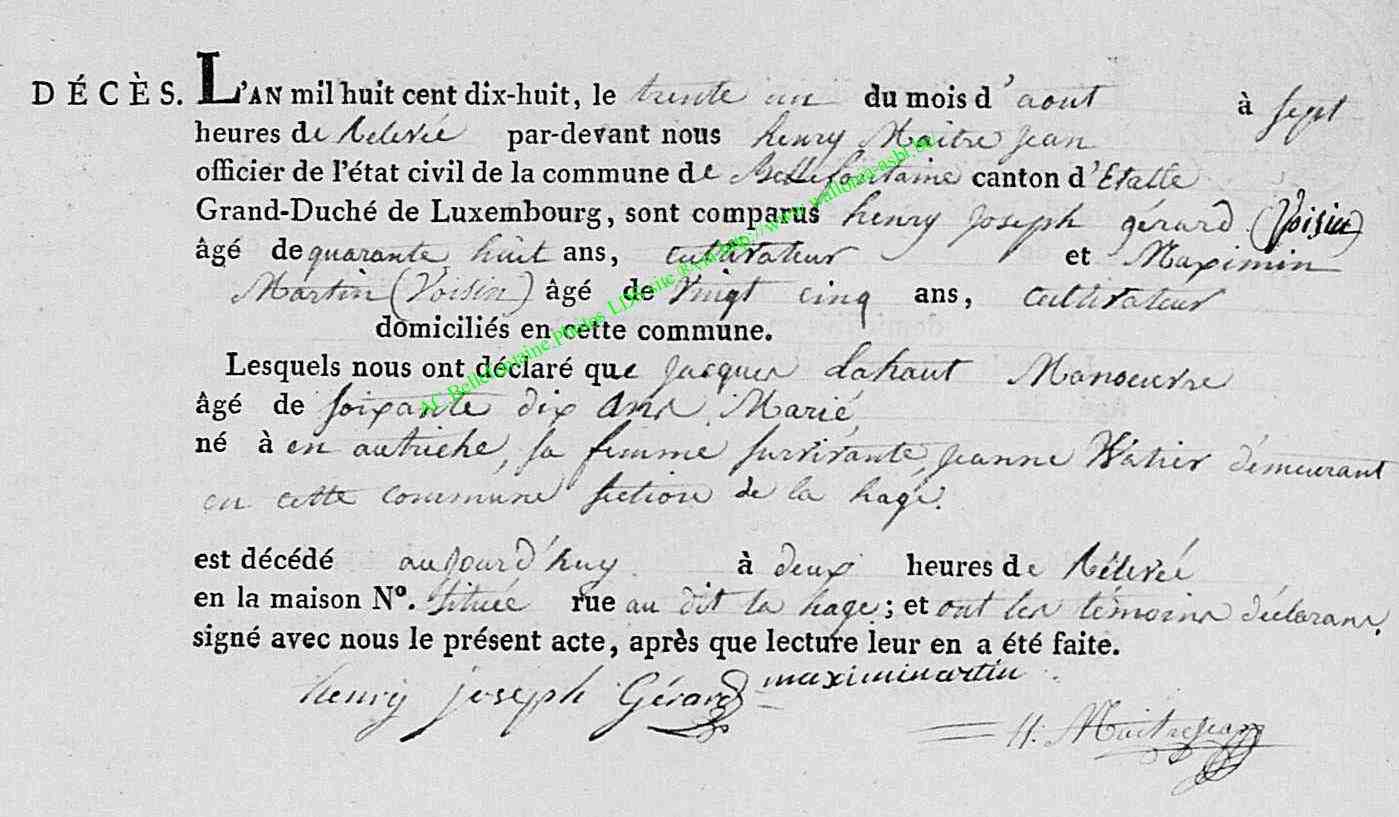 DÉCÈS. L'AN mil huit cent dix-huit, le trente un du mois d'aout à sept
heures de Relevée par-devant nous henry Maitre jean
officier de l'état civil de la commune de Bellefontaine canton d'Etalle
Grand-Duché de Luxembourg, sont comparus henry Joseph gérard (Voisin)
âgé de quarante huit ans, cultivateur et Maximin
Martin (Voisin) âgé de Vingt cinq ans, cultivateur
domiciliés en cette commune.
Lesquels nous ont déclaré que jacques Lahaut Manoeuvre
âgé de soixante dix ans, Marié,
né à en autriche, sa femme survivante, jeanne Watier demeurant
en cette commune section de la hage.
est décédé aujourd'huy à deux heures de Rélevé
en la maison Nº. située rue au dit la hage; et ont les témoins déclarans,
signé avec nous le présent acte, après que lecture leur en a été faite.
henry joseph Gérard maximimartin
H. Maitrejean